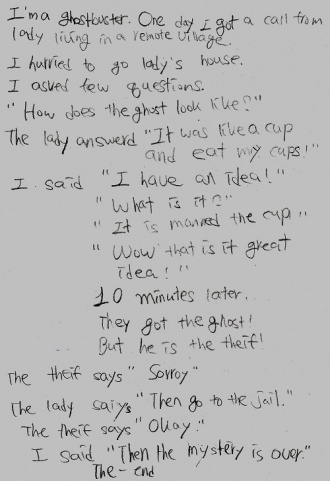 I'm a ghostbuster. One day I got a call from
lady living in a remote village.
I hurried to go lady's house.
I asked few questions.
"How does the ghost look like?"
The lady answerd "It was like a cup
and eat my cups!"
I said "I have an idea!"
"What is it?"
"It is manned the cup"
"Wow that is it great
idea!"
10 minutes later.
They got the ghost!
But he is the theif!
The theif says "Sorroy"
The lady saiys "Then go to the jail."
The theif says "Okay."
I said "Then the mystery is over."
The-end